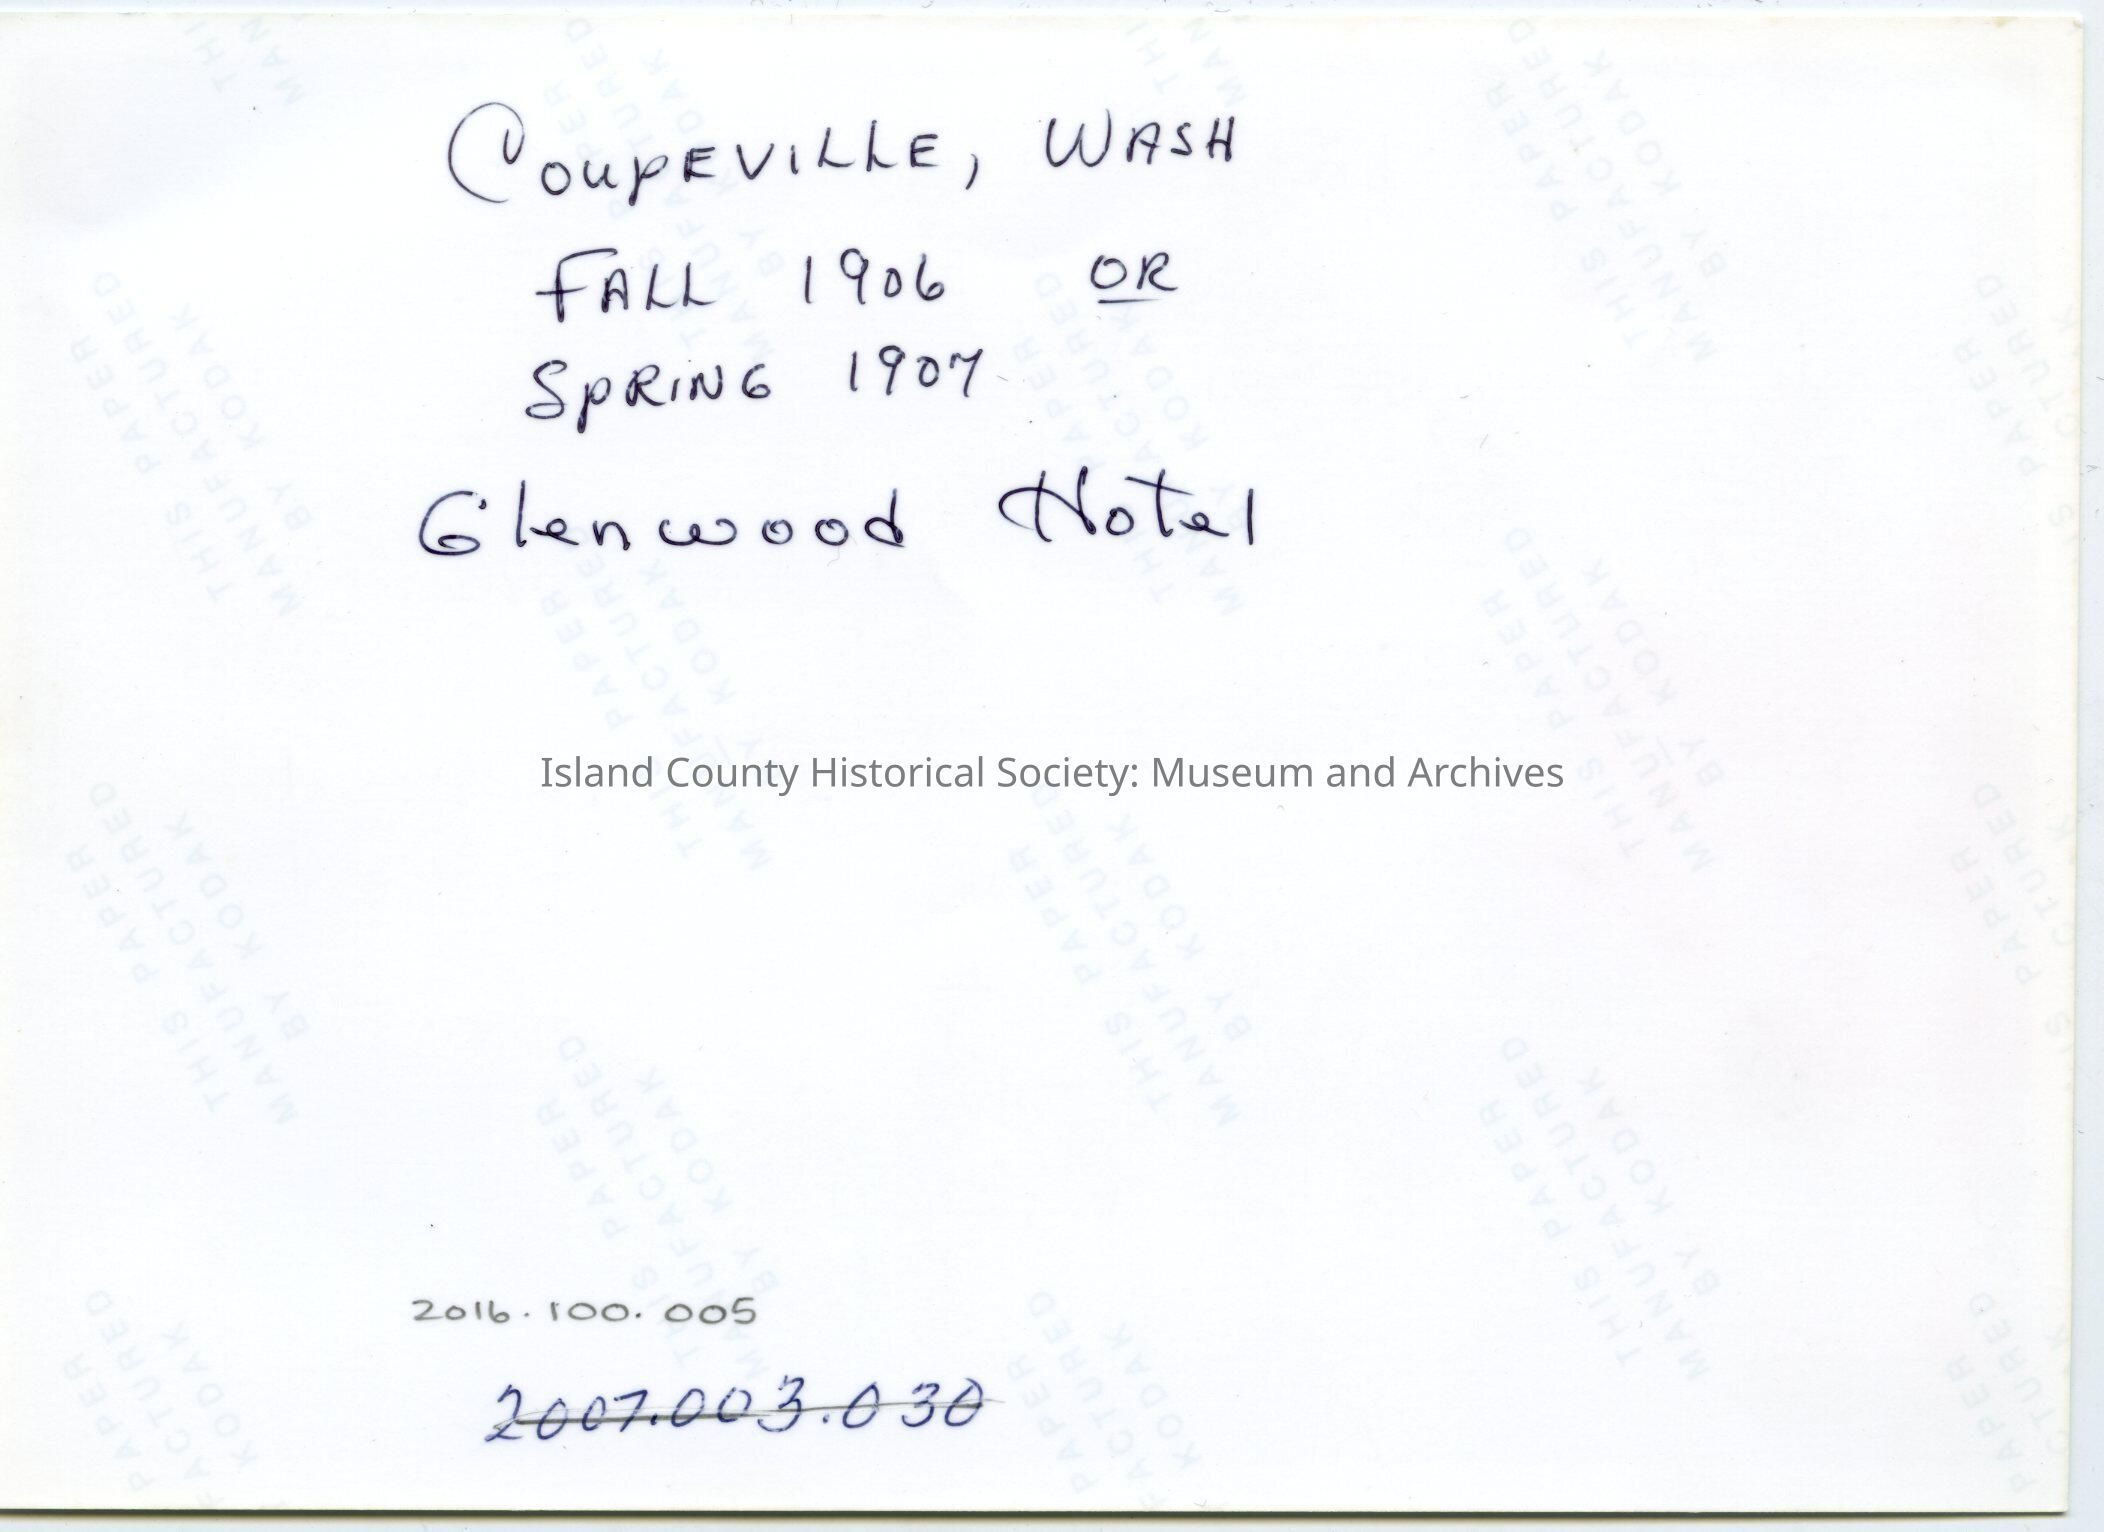 Coupeville, Wash
Fall 1906 or
Spring 1907
Glenwood Hotel
Island County Historical Society: Museum and Archives
2016.100.005
2007.003.030
THIS PAPER
MANUFACTURED
BY KODAK